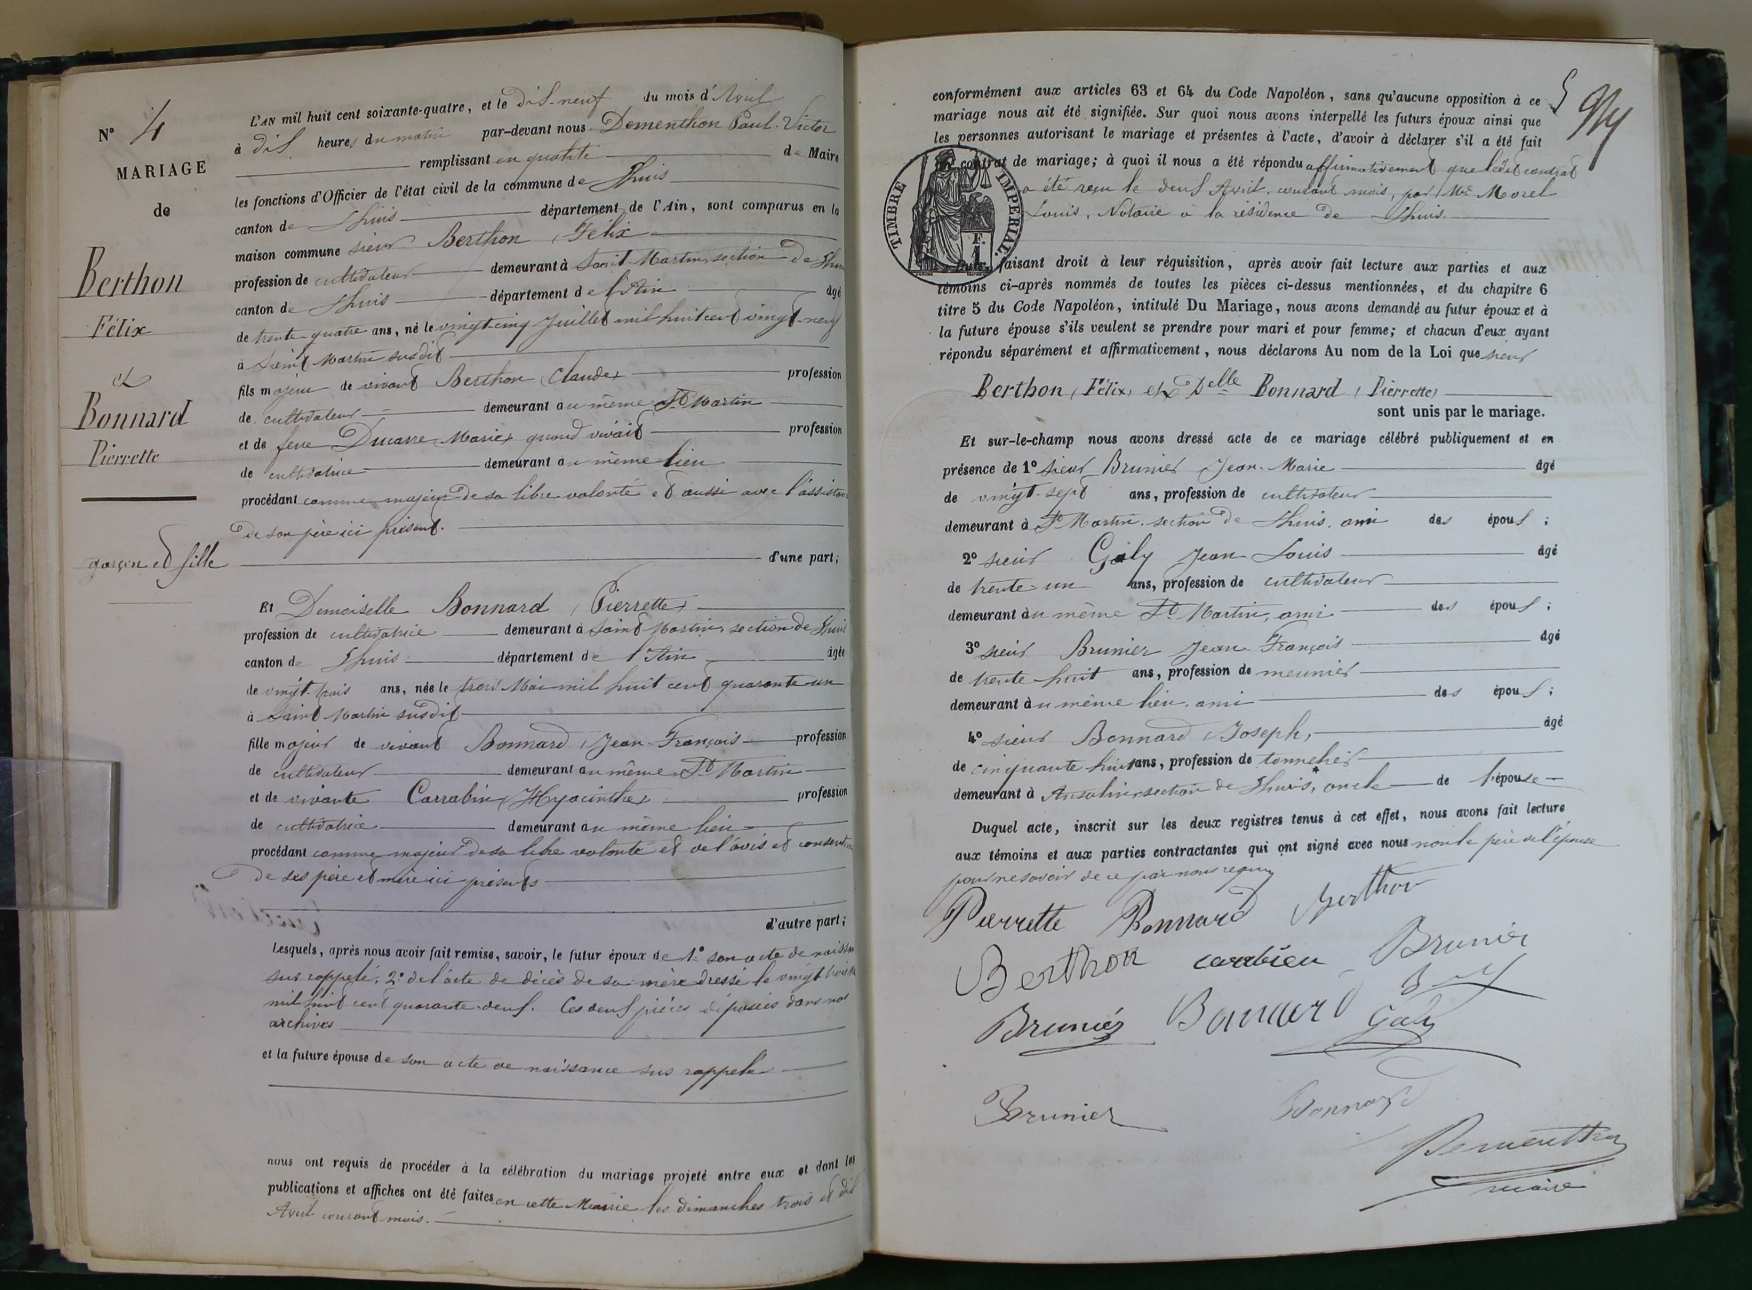 N° 4
MARIAGE
de
Berthon
Félix
et
Bonnard
Pierrette
garçon et fille
L'AN mil huit cent soixante-quatre, et le dix-neuf du mois d'Avril
à dix heures du matin par-devant nous Dementhon Paul-Victor
remplissant en qualité de Maire
les fonctions d'Officier de l'état civil de la commune de Lhuis
canton de Lhuis département de l'Ain, sont comparus en la
maison commune sieur Berthon, Felix
profession de cultivateur demeurant à Saint Martin, section de Lhuis
canton de Lhuis département de l'Ain âgé
de trente-quatre ans, né le vingt cinq Juillet mil huit cent vingt-neuf
à Saint Martin susdit
fils majeur de vivant Berthon, Claude, profession
de cultivateur demeurant au même St Martin
et de feue Ducarre, Marie, quand vivait profession
de cultivatrice demeurant au même lieu
procédant comme majeur de sa libre volonté et aussi avec l'assistance
de son père ici présent.
d'une part;
Et Demoiselle Bonnard, Pierrette,
profession de cultivatrice demeurant à Saint Martin, section de Lhuis
canton de Lhuis département de l'Ain âgée
de vingt-trois ans, née le trois Mai mil huit cent quarante-un
à Saint Martin susdit
fille majeur de vivant Bonnard, Jean-François profession
de cultivateur demeurant au même St Martin
et de vivante Carrabin, Hyacinthe, profession
de cultivatrice demeurant au même lieu
procédant comme majeur de sa libre volonté et de l'avis et consent
de ses père et mère ici présents
d'autre part;
Lesquels, après nous avoir fait remise, savoir, le futur époux de 1° son acte de naissance
sus rappelé; 2° de l'acte de décès de sa mère dressé le vingt
mil huit cent quarante-deux. Ces deux pièces déposées dans nos
archives
et la future épouse de son acte de naissance sus rappelé
nous ont requis de procéder à la célébration du mariage projeté entre eux et dont les
publications et affiches ont été faites en cette Mairie les dimanches trois et dix
Avril courant mois.
conformément aux articles 63 et 64 du Code Napoléon, sans qu'aucune opposition à ce
mariage nous ait été signifiée. Sur quoi nous avons interpellé les futurs époux ainsi que
les personnes autorisant le mariage et présentes à l'acte, d'avoir à déclarer s'il a été fait
contrat de mariage; à quoi il nous a été répondu affirmativement que ledit contrat
a été reçu le deux Avril, courant mois, par Me Morel
Louis, Notaire à la résidence de Lhuis.
TIMBRE IMPERIAL
F.
1
Puis, faisant droit à leur réquisition, après avoir fait lecture aux parties et aux
témoins ci-après nommés de toutes les pièces ci-dessus mentionnées, et du chapitre 6
titre 5 du Code Napoléon, intitulé Du Mariage, nous avons demandé au futur époux et à
la future épouse s'ils veulent se prendre pour mari et pour femme; et chacun d'eux ayant
répondu séparément et affirmativement, nous déclarons Au nom de la Loi que sieur
Berthon, Félix, et Delle Bonnard, Pierrette,
sont unis par le mariage.
Et sur-le-champ nous avons dressé acte de ce mariage célébré publiquement et en
présence de 1° sieur Brunier Jean-Marie âgé
de vingt-sept ans, profession de cultivateur
demeurant à St Martin, section de Lhuis, ami des époux;
2° sieur Galy Jean Louis âgé
de trente-un ans, profession de cultivateur
demeurant au même St Martin, ami des époux;
3° sieur Brunier Jean François âgé
de trente-huit ans, profession de meunier
demeurant au même lieu, ami des époux;
4° sieur Bonnard, Joseph, âgé
de cinquante huit ans, profession de tonnelier
demeurant à Ansolin, section de Lhuis, oncle de l'épouse
Duquel acte, inscrit sur les deux registres tenus à cet effet, nous avons fait lecture
aux témoins et aux parties contractantes qui ont signé avec nous non le père de l'épouse
pour ne savoir de ce par nous requis
Pierrette Bonnard Berthon
Berthon carabien Brunier
Brunier Bonnard Galy
Brunier Bonnard
Dementhon
maire